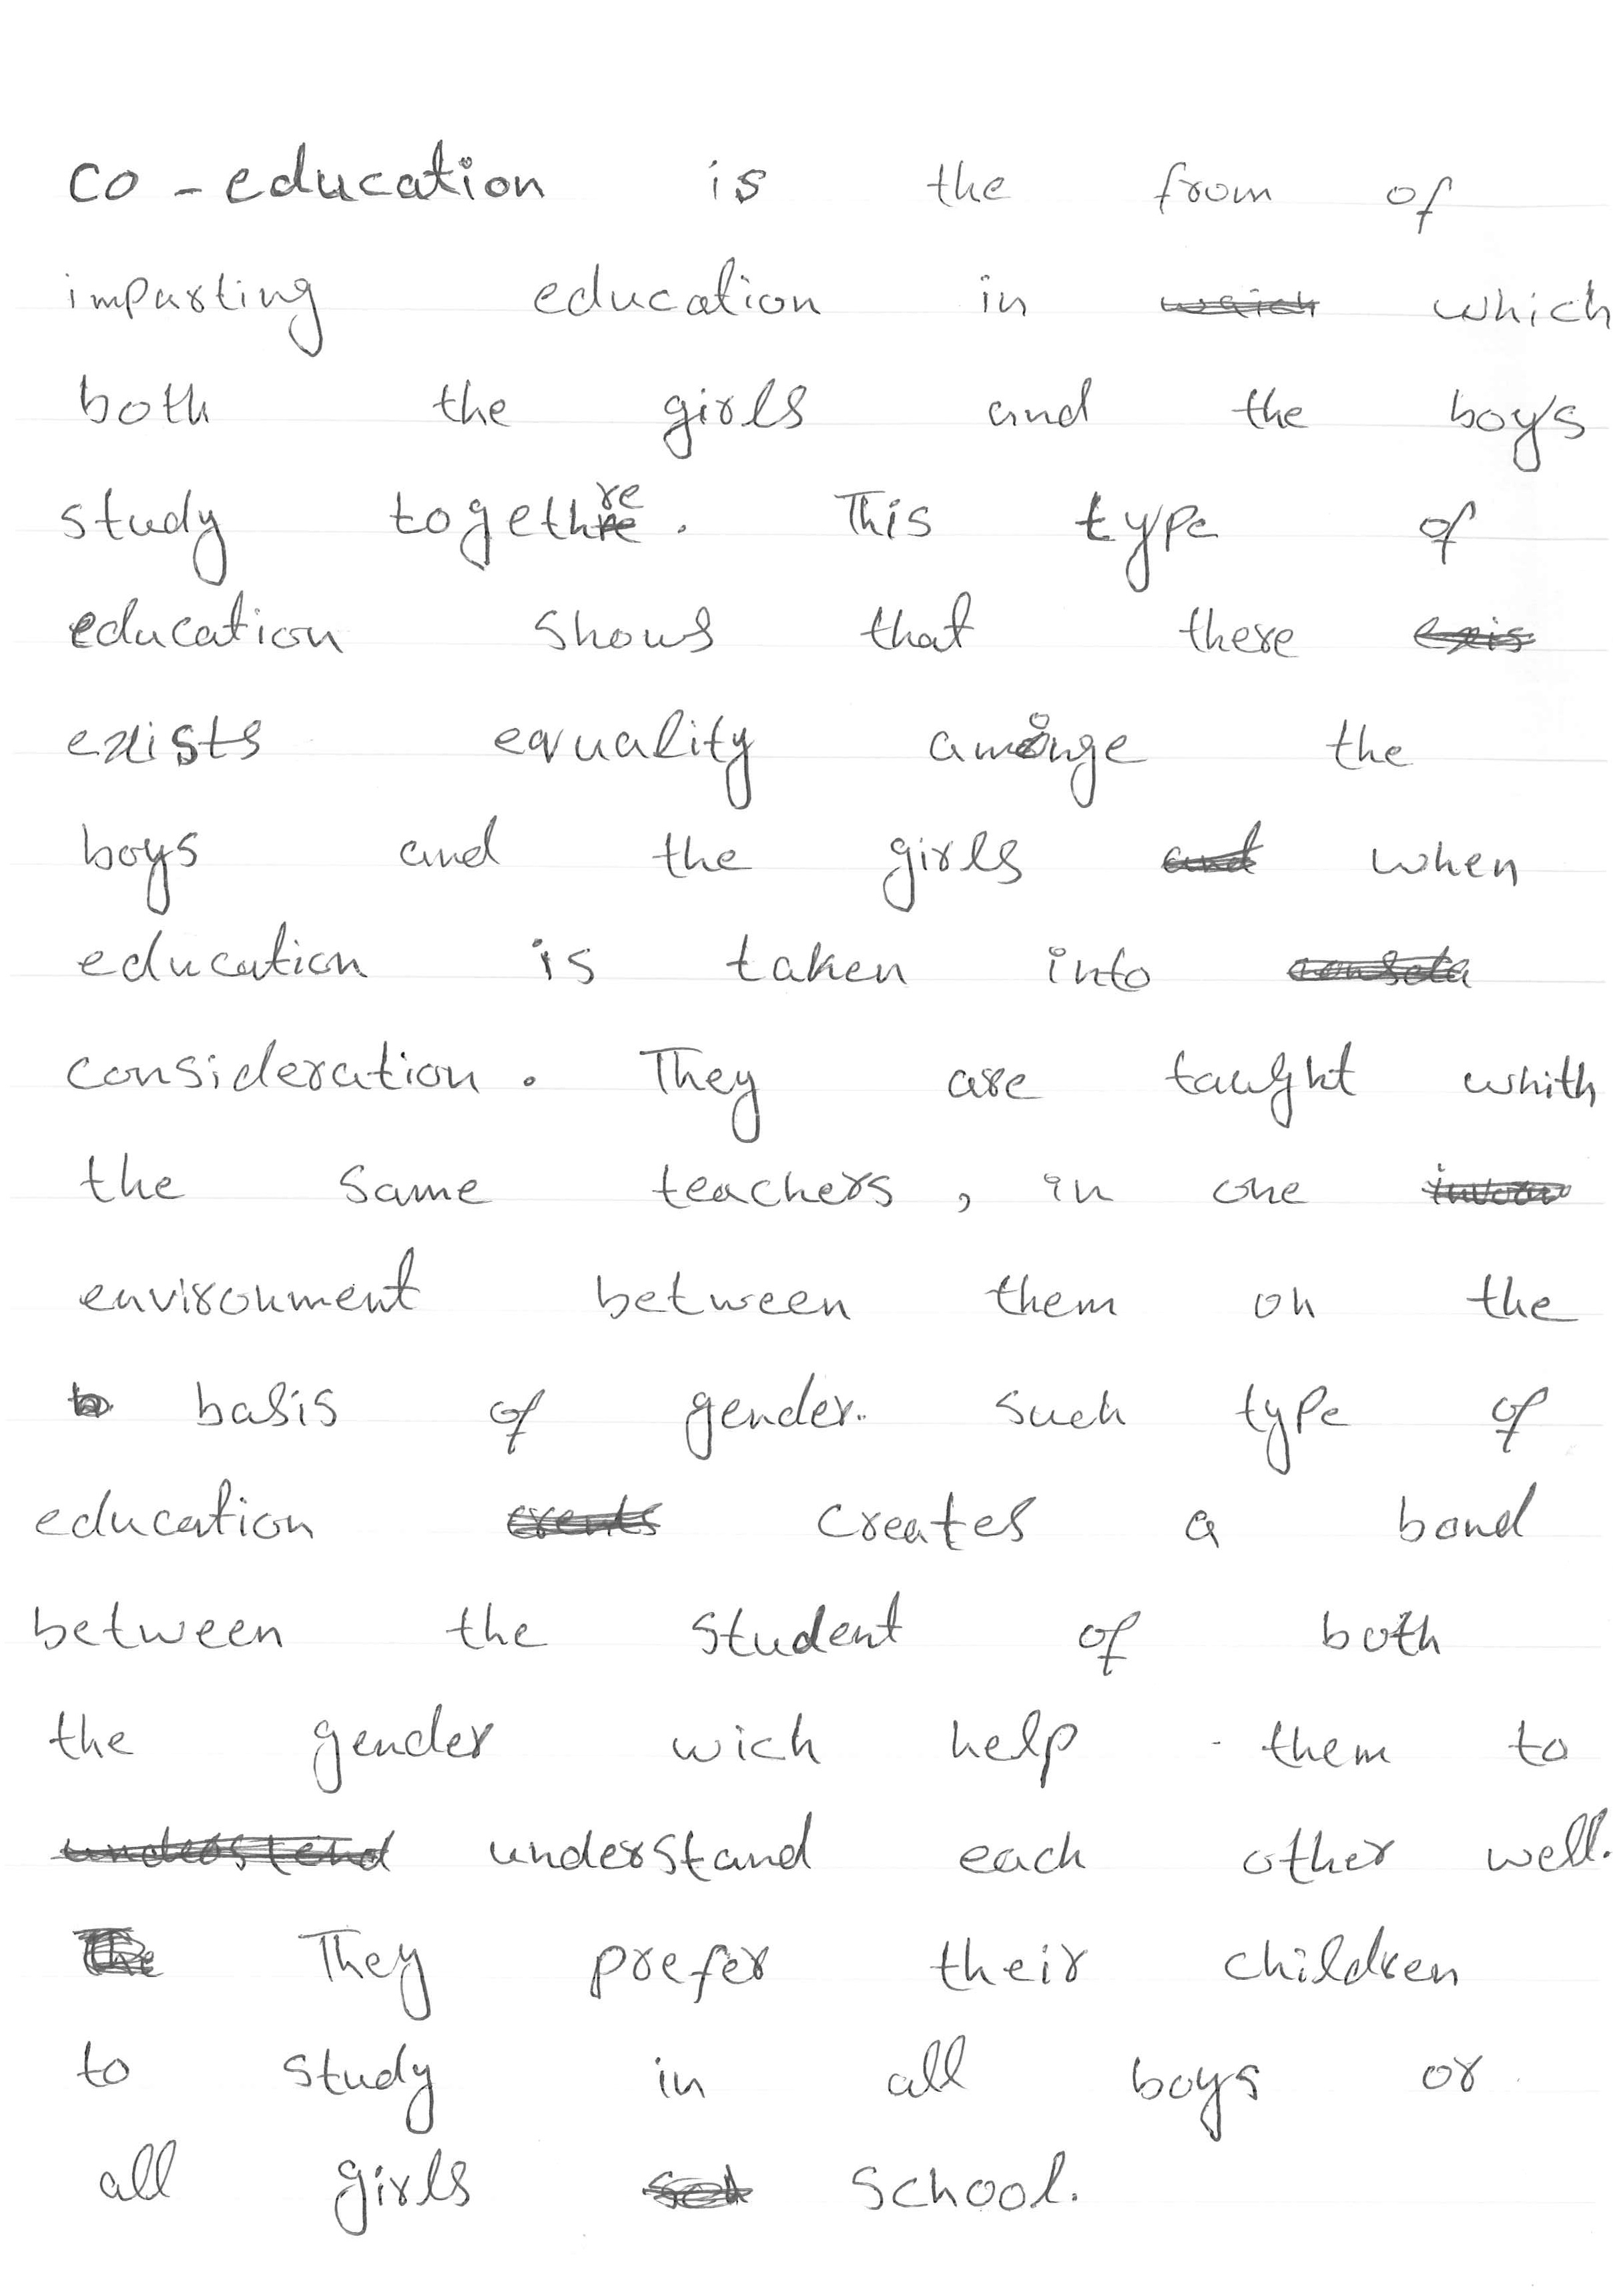 co - education is the from of
imparting education in which
both the girls and the boys
study togethre. This type of
education shows that there
exists equality amonge the
boys and the girls when
education is taken into
consideration. They are taught whith
the same teachers, in one
environment between them on the
basis of gender. such type of
education creates a bond
between the student of both
the gender wich help them to
understand each other well.
They prefer their children
to study in all boys or
all girls school.